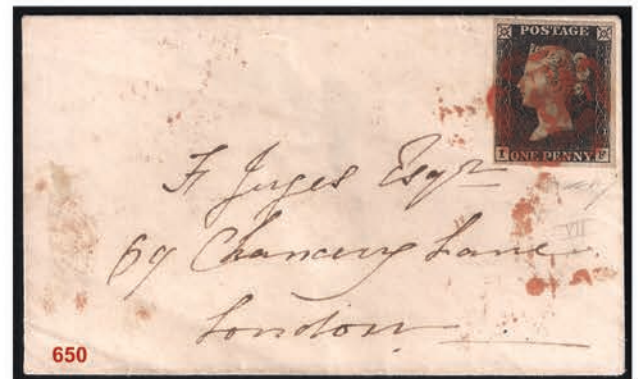 POSTAGE
I ONE PENNY F
F Juges Esqre
69 Chancery Lane
London
VII
650